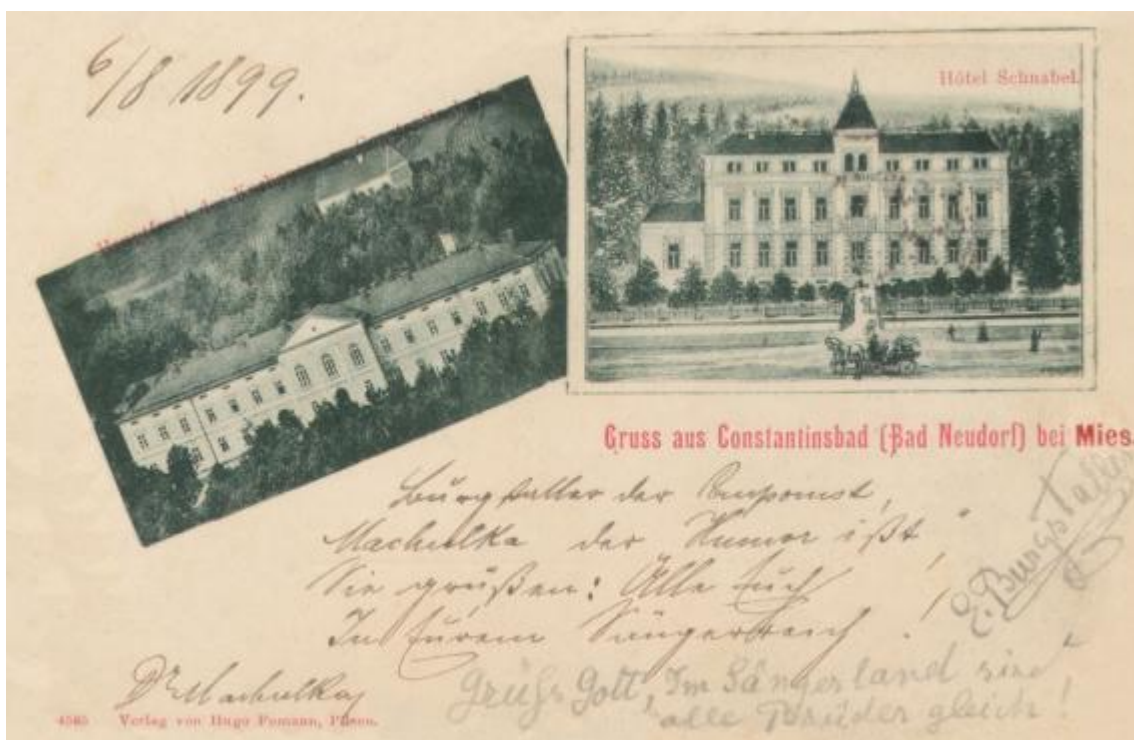 6/8 1899.
Hôtel Schnabel.
Gruss aus Constantinsbad (Bad Neudorf) bei Mies.
Burgstaller der Componist,
Machulka der Humorißt
Sie grüßen: Alle Euch
In Eurem Sängerreich!
E. Burgstaller
Dr Machulka
Grüß Gott, Im Sängerland sind
alle Brüder gleich!
4565 Verlag von Hugo Pomann, Pilsen.